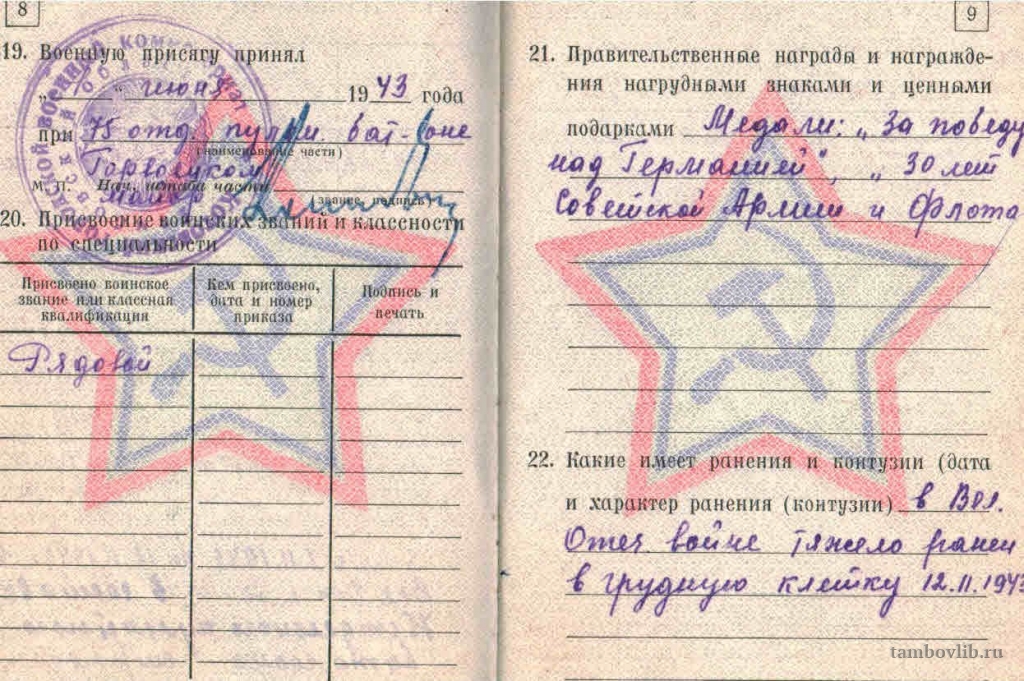 8
19. Военную присягу принял
„ “ июня 1943 года
при 75 отд. пулем. бат-оне
(наименование части)
Горвоенком
М. П. Нач. штаба части
майор
(звание, подпись)
20. Присвоение воинских званий и классности
по специальности
Присвоено воинское
звание или классная
квалификация
Кем присвоено,
дата и номер
приказа
Подпись и
печать
Рядовой
9
21. Правительственные награды и награжде-
ния нагрудными знаками и ценными
подарками Медали: „За победу
над Германией“, „30 лет
Советской Армии и Флота
22. Какие имеет ранения и контузии (дата
и характер ранения (контузии) в Вел.
Отеч войне тяжело ранен
в грудную клетку 12.11.1943
tambovlib.ru